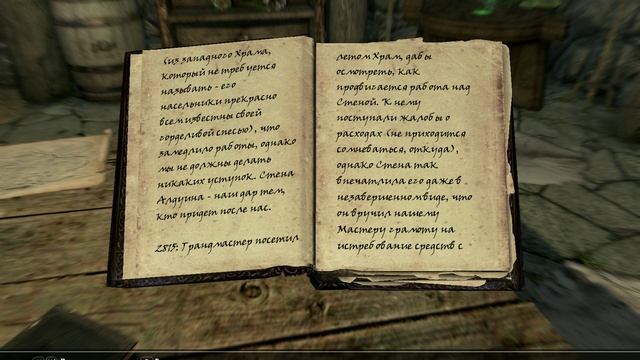 (из западного Храма,
который не требуется
называть - его
насельники прекрасно
всем известны своей
горделивой спесью), что
замедлило работы, однако
мы не должны делать
никаких уступок. Стена
Алдуина - наш дар тем,
кто придет после нас.
2815: Грандмастер посетил
летом Храм, дабы
осмотреть, как
продвигается работа над
Стеной. К нему
поступали жалобы о
расходах (не приходится
сомневаться, откуда),
однако Стена так
впечатлила его даже в
незавершенном виде, что
он вручил нашему
Мастеру грамоту на
истребование средств с